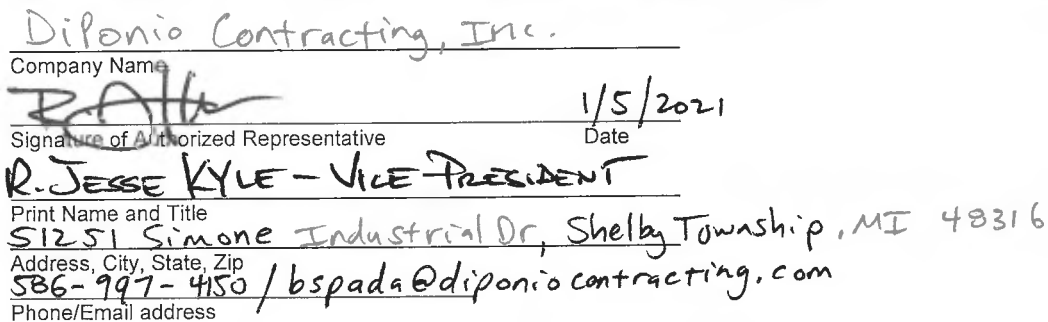 DiPonio Contracting, Inc.
Company Name
1/5/2021
Signature of Authorized Representative Date
R. JESSE KYLE - VICE PRESIDENT
Print Name and Title
51251 Simone Industrial Dr, Shelby Township, MI 48316
Address, City, State, Zip
586-997-4150 / bspada@diponiocontracting.com
Phone/Email address